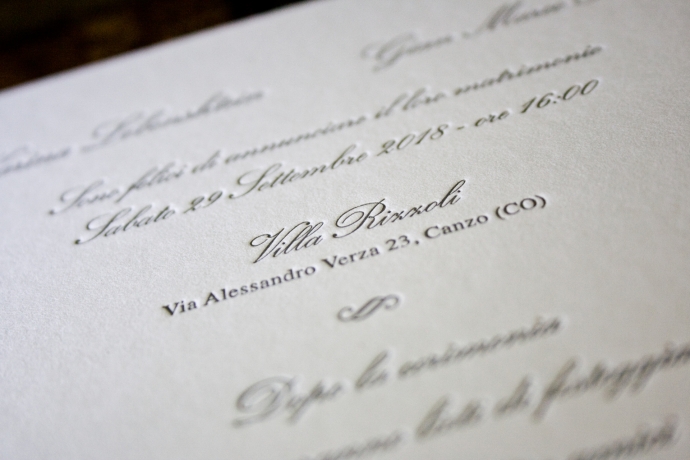 Gian Marco
Sono felici di annunciare il loro matrimonio
Sabato 29 Settembre 2018 - ore 16:00
Villa Rizzoli
Via Alessandro Verza 23, Canzo (CO)
Dopo la cerimonia
lieti di festeggiare